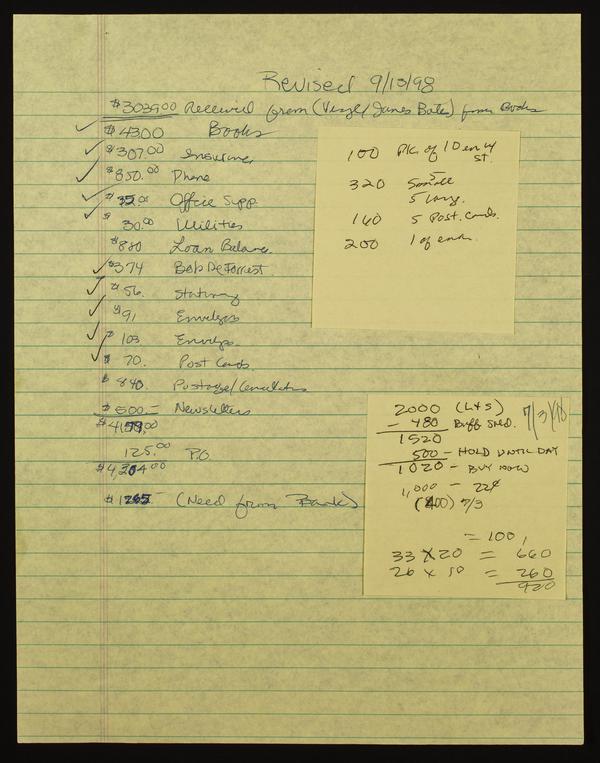 Revised 9/13/98
$3039.00 Received from (Virgil/James Bates) from Books
$4300 Books
$307.00 Insurance
$850.00 Phone
$35.00 Office Supp.
$30.00 Utilities
$880 Loan Balance
$374 Bob DeForrest
$56. Stationary
$91, Envelopes
$103 Envelopes
$70. Post Cards
$840. Postage/Cancellation
$500.— Newsletters
$4179.00
125.00 P.O.
$4,204.00
$1265— (Need from Bank)
100 PK. of 10 env
St.
320 5 small
5 larg.
160 5 Post. Cards.
200 1 of each.
2000 (L+S)
7/3/98
- 480 Buff Shed.
1520
500 - HOLD UNTIL DAY
1020 - BUY NOW
1,000 - 22¢
(400) 7/3
= 100,
33 X 20 = 660
26 x 10 = 260
920